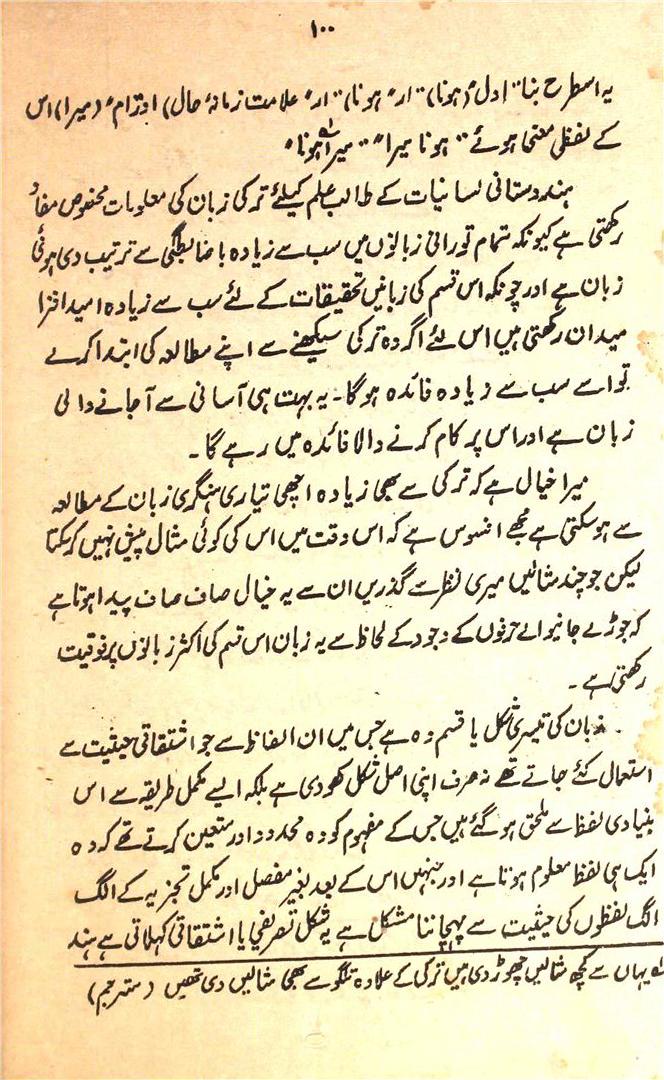 ۱۰۰
یہ اسطرح بنا "اول" (ہونا) "ار" ہونا) "ار" علامت زمانۂ حال) اور "ام" (میرا) اس
کے لفظی معنی ہوئے "ہونا میرا" "میرا ہونا"
ہندوستانی لسانیات کے طالب علم کیلئے ترکی زبان کی معلومات مخصوص مفاد
رکھتی ہے کیونکہ تمام تورانی زبانوں میں سب سے زیادہ باضابطگی سے ترتیب دی ہوئی
زبان ہے اور چونکہ اس قسم کی زبانیں تحقیقات کے لئے سب سے زیادہ امید افزا
میدان رکھتی ہیں اس لئے اگر وہ ترکی سیکھنے سے اپنے مطالعہ کی ابتدا کرے
تو اسے سب سے زیادہ فائدہ ہوگا۔ یہ بہت ہی آسانی سے آجانے والی
زبان ہے اور اس پر کام کرنے والا فائدہ میں رہے گا۔
میرا خیال ہے کہ ترکی سے بھی زیادہ اچھی تیاری ہنگری زبان کے مطالعہ
سے ہوسکتی ہے مجھے افسوس ہے کہ اس وقت میں اس کی کوئی مثال پیش نہیں کرسکتا
لیکن جو چند مثالیں میری نظر سے گذریں ان سے یہ خیال صاف صاف پیدا ہوتا ہے
کہ جوڑے جانیوالے حرفوں کے وجود کے لحاظ سے یہ زبان اس قسم کی اکثر زبانوں پر فوقیت
رکھتی ہے۔
زبان کی تیسری شکل یا قسم وہ ہے جس میں ان الفاظ سے جو اشتقاقی حیثیت سے
استعمال کئے جاتے تھے نہ صرف اپنی اصل شکل کھو دی ہے بلکہ ایسے مکمل طریقہ سے اس
بنیادی لفظ سے ملحق ہو گئے ہیں جس کے مفہوم کو وہ محدود اور متعین کرتے تھے کہ وہ
ایک ہی لفظ معلوم ہوتا ہے اور جنہیں اس کے بعد بغیر مفصل اور مکمل تجزیہ کے الگ
الگ لفظوں کی حیثیت سے پہچاننا مشکل ہے یہ شکل تصریفی یا اشتقاقی کہلاتی ہے ہند
لہ یہاں سے کچھ مثالیں چھوڑ دی ہیں ترکی کے علاوہ تلگو سے بھی مثالیں دی تھیں (مترجم)